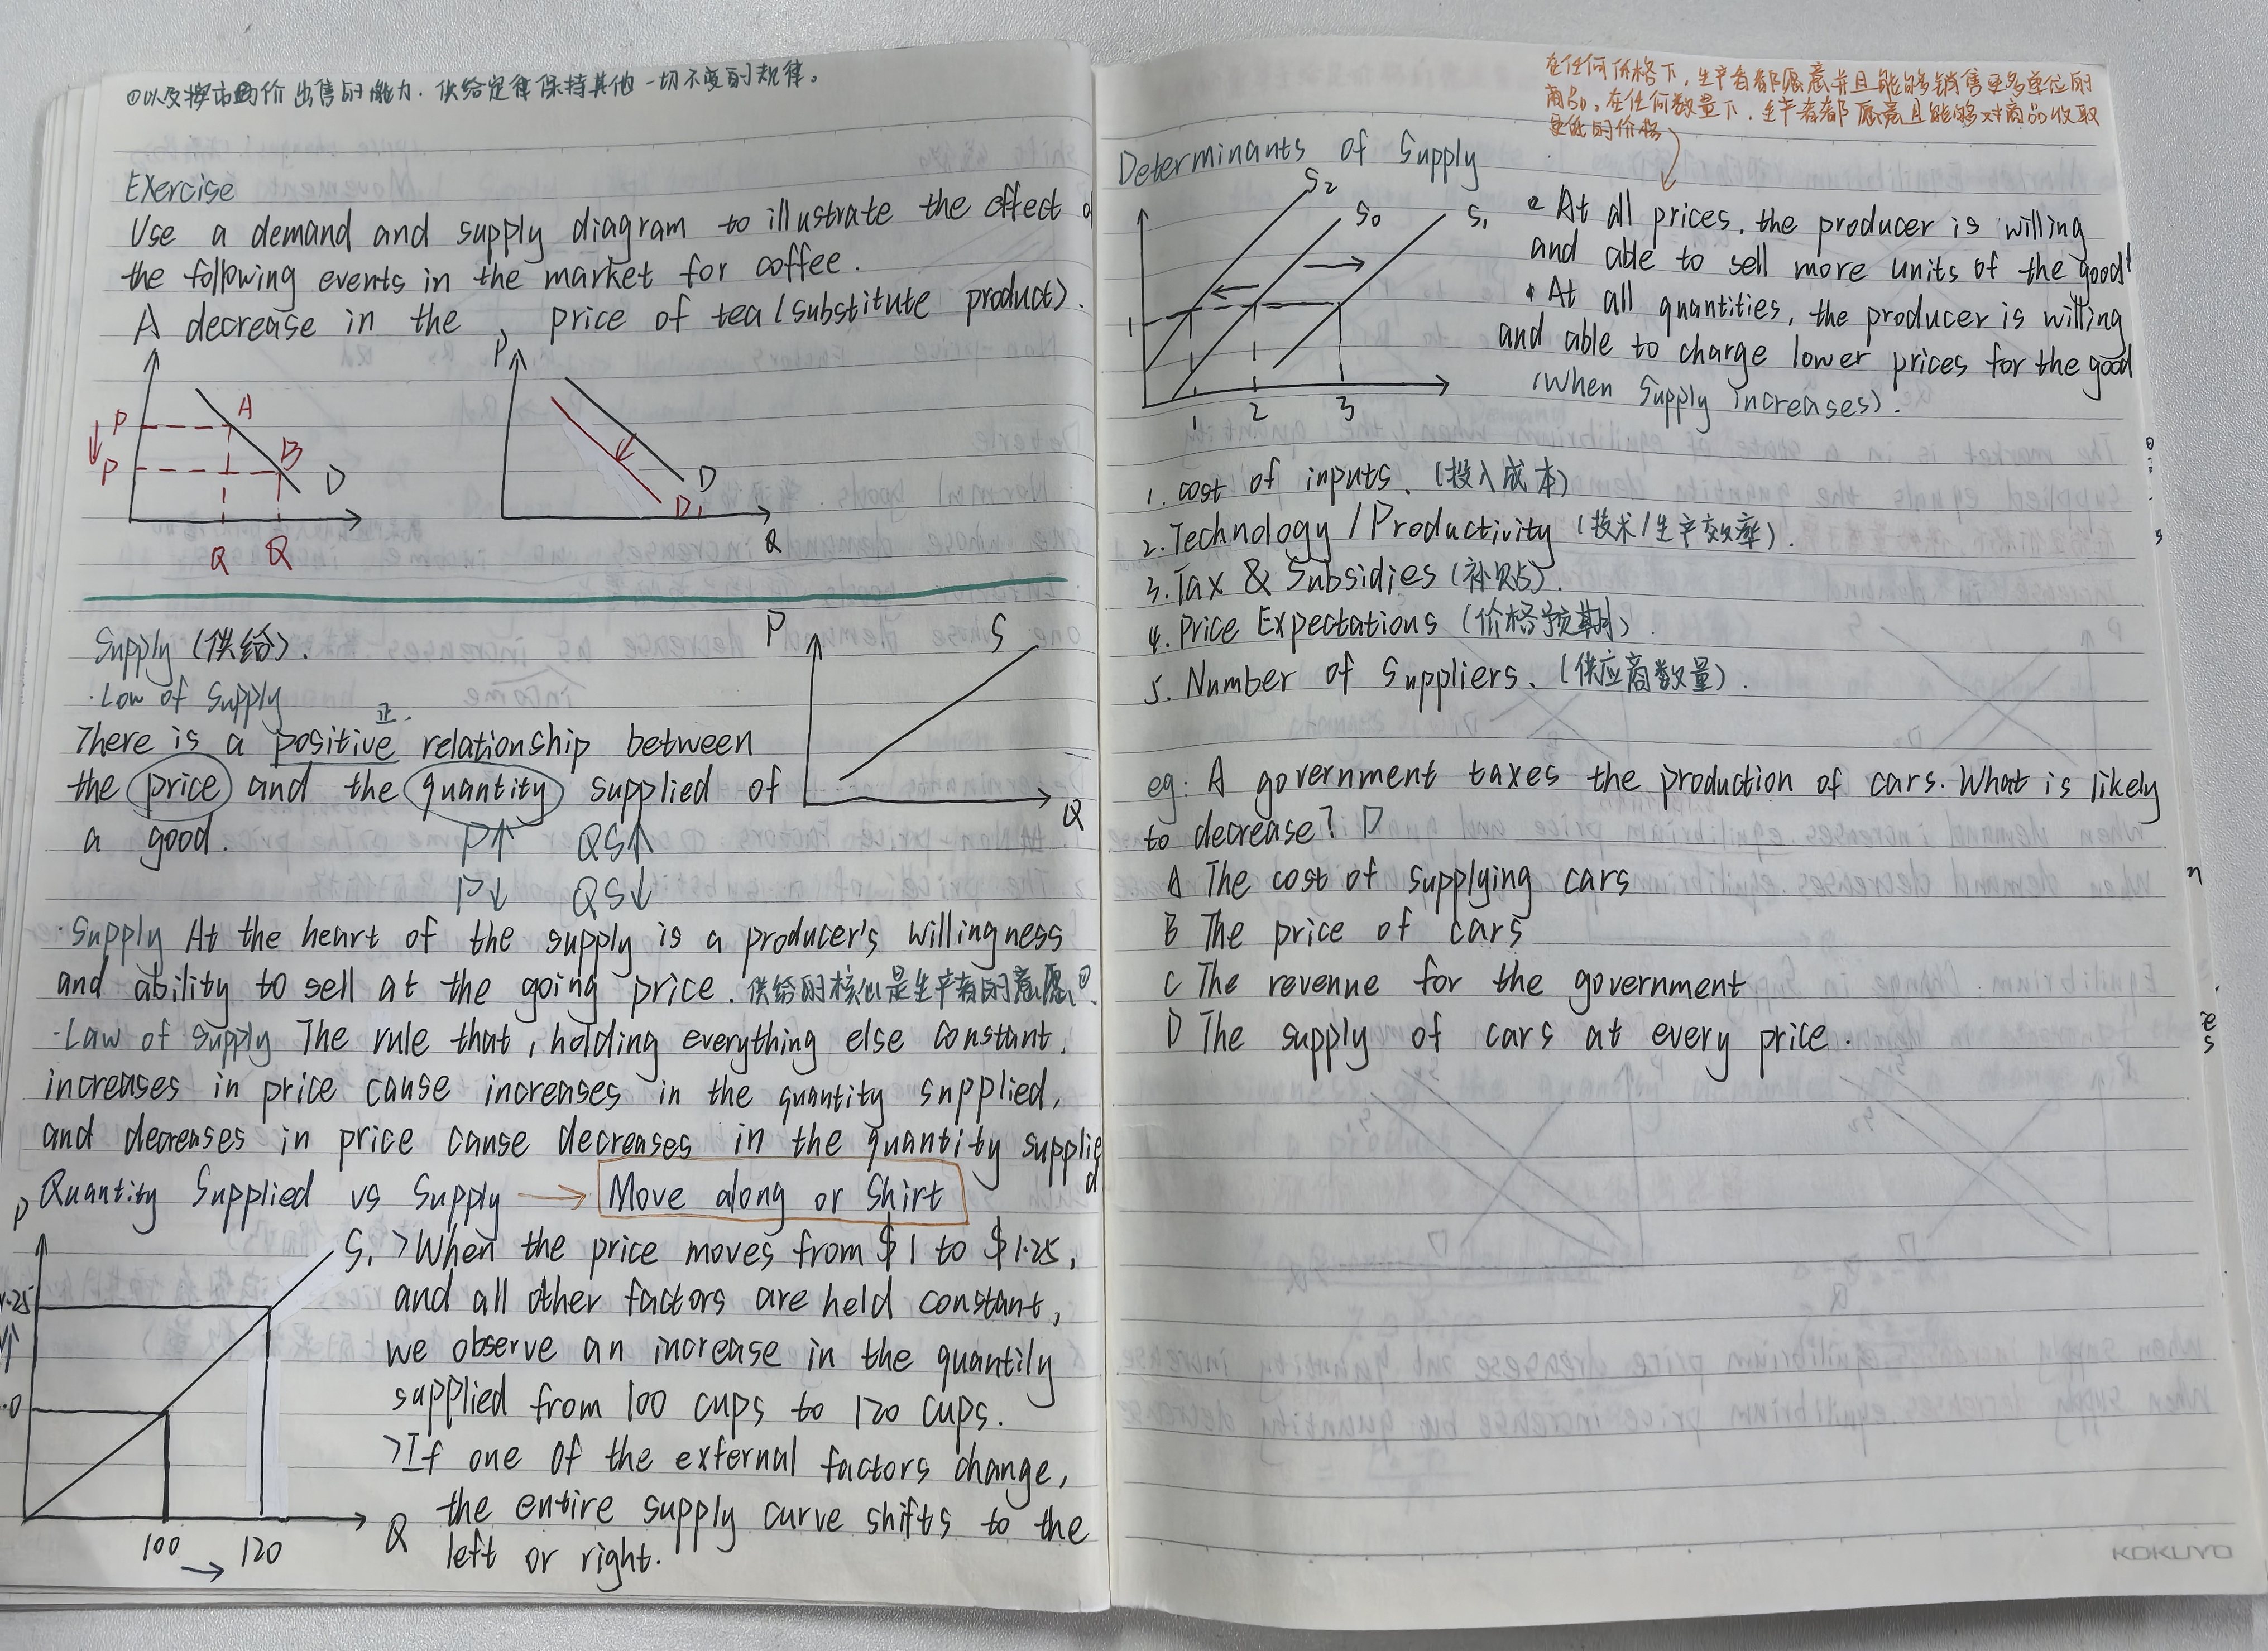 ①以及按市的价出售的能力.供给定律保持其他一切不变的规律。
Exercise
Use a demand and supply diagram to illustrate the effect
the following events in the market for coffee.
A decrease in the price of tea (substitute product).
P
P
P
A
B
D
Q
Q
D
D1
Q
Supply (供给).
·Law of Supply
正.
There is a positive relationship between
the price and the quantity supplied of
a good.
P↑ QS↑
P↓ QS↓
P
S
Q
·Supply At the heart of the supply is a producer's willingness
and ability to sell at the going price. 供给的核心是生产者的意愿①.
·Law of Supply The rule that, holding everything else constant,
increases in price cause increases in the quantity supplied,
and decreases in price cause decreases in the quantity supplied
Quantity Supplied vs Supply → Move along or Shirt
P
S1
1.25
.0
100 → 120
Q
>When the price moves from $1 to $1.25,
and all other factors are held constant,
we observe an increase in the quantily
supplied from 100 cups to 120 cups.
>If one of the external factors change,
the entire supply curve shifts to the
left or right.
在任何价格下,生产者都愿意并且能够销售更多单位的
商品。在任何数量下,生产者都愿意且能够对商品收取
更低的价格
Determinants of Supply
S2
S0
S1
1
1
2
3
• At all prices, the producer is willing
and able to sell more units of the good!
• At all quantities, the producer is willing
and able to charge lower prices for the good
(When Supply increases).
1. cost of inputs. (投入成本)
2. Technology / Productivity (技术/生产效率).
3. Tax & Subsidies (补贴).
4. Price Expectations (价格预期).
5. Number of Suppliers. (供应商数量).
eg: A government taxes the production of cars. What is likely
to decrease? D
A The cost of supplying cars
B The price of cars
C The revenue for the government
D The supply of cars at every price.
KOKUYO